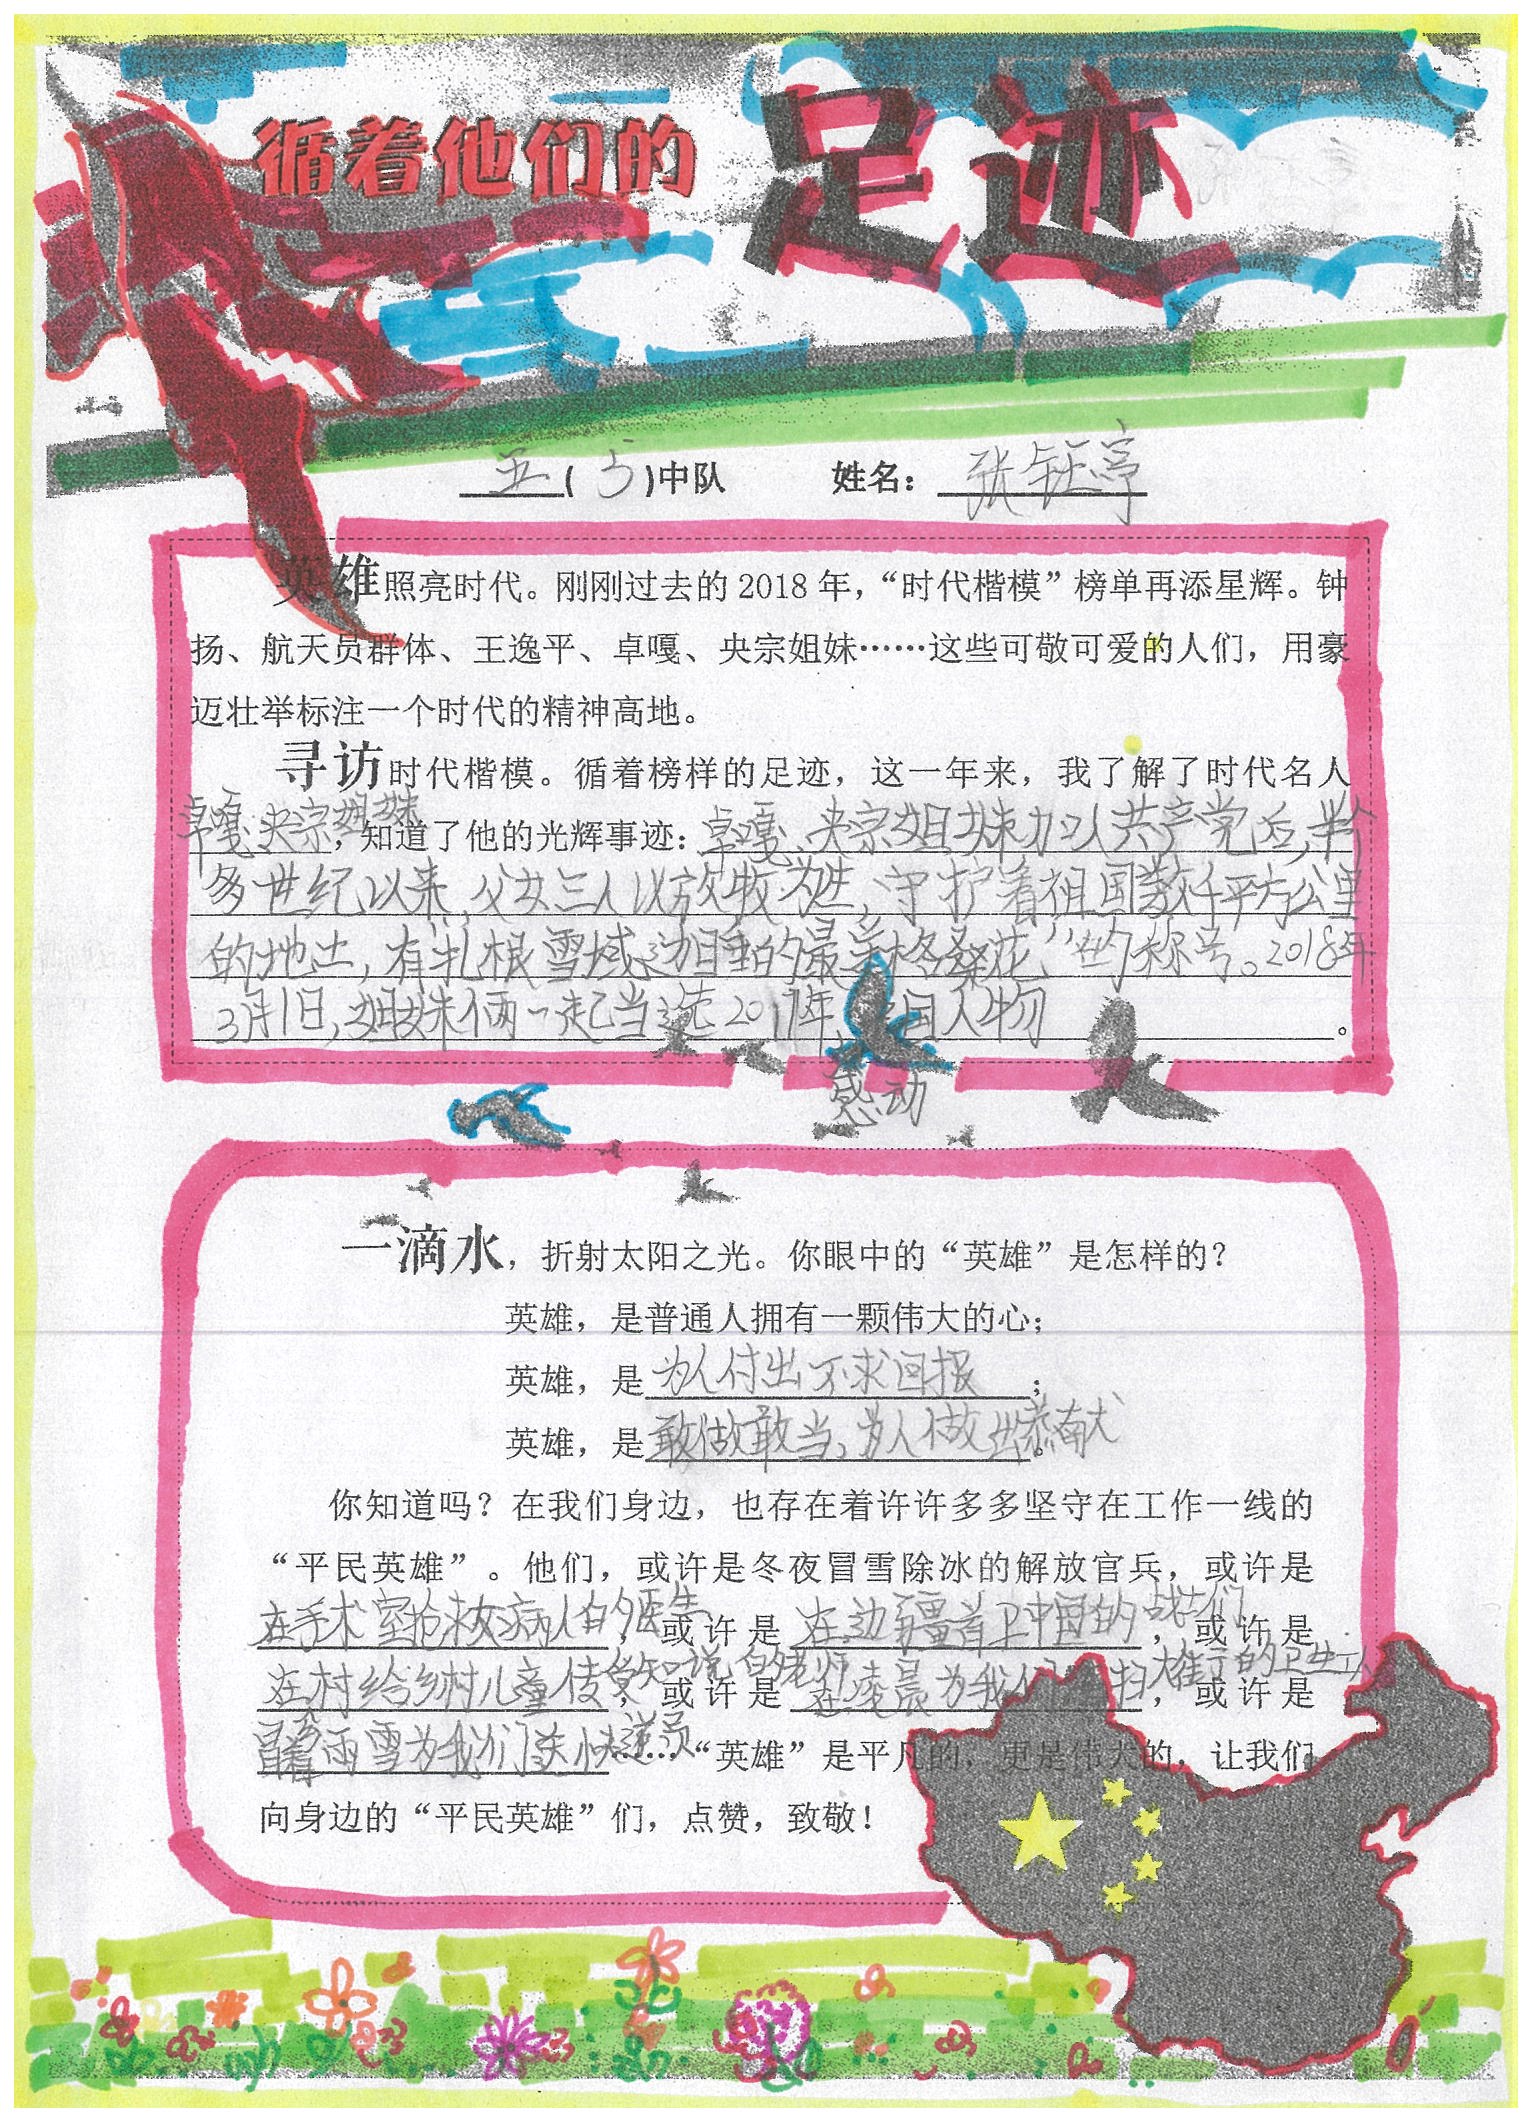 循着他们的 足迹
五(5)中队 姓名：张钰
英雄照亮时代。刚刚过去的2018年，“时代楷模”榜单再添星辉。钟
扬、航天员群体、王逸平、卓嘎、央宗姐妹……这些可敬可爱的人们，用豪
迈壮举标注一个时代的精神高地。
寻访时代楷模。循着榜样的足迹，这一年来，我了解了时代名人
卓嘎、央宗姐妹，知道了他的光辉事迹：卓嘎、央宗姐妹加入共产党后，半个
多世纪以来，父女三人以放牧为生，守护着祖国数千平方公里
的地土，有“扎根雪域边陲的最美格桑花”的称号。2018年
3月1日，姐妹俩一起当选2017年 中国人物。
感动
一滴水，折射太阳之光。你眼中的“英雄”是怎样的？
英雄，是普通人拥有一颗伟大的心；
英雄，是为人付出不求回报；
英雄，是敢做敢当，为人做出恭献。
你知道吗？在我们身边，也存在着许许多多坚守在工作一线的
“平民英雄”。他们，或许是冬夜冒雪除冰的解放官兵，或许是
在手术室抢求救病人的医生，或许是在边疆首卫中国的战士们，或许是
在村给乡村儿童传受知识的老师，或许是在凌晨为我们扫大街的卫生工人，或许是
冒着雨雪为我们送快递员……“英雄”是平凡的，更是伟大的，让我们
向身边的“平民英雄”们，点赞，致敬！